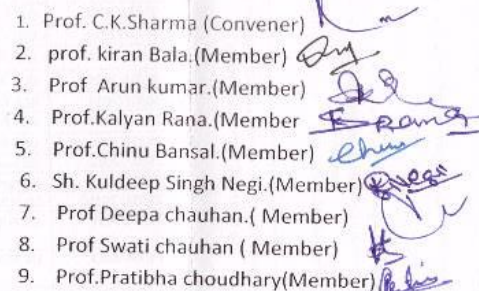 1. Prof. C.K.Sharma (Convener)
2. prof. kiran Bala.(Member)
3. Prof Arun kumar.(Member)
4. Prof.Kalyan Rana.(Member KRana
5. Prof.Chinu Bansal.(Member) Chinu
6. Sh. Kuldeep Singh Negi.(Member) KNegi
7. Prof Deepa chauhan.( Member)
8. Prof Swati chauhan ( Member)
9. Prof.Pratibha choudhary(Member)